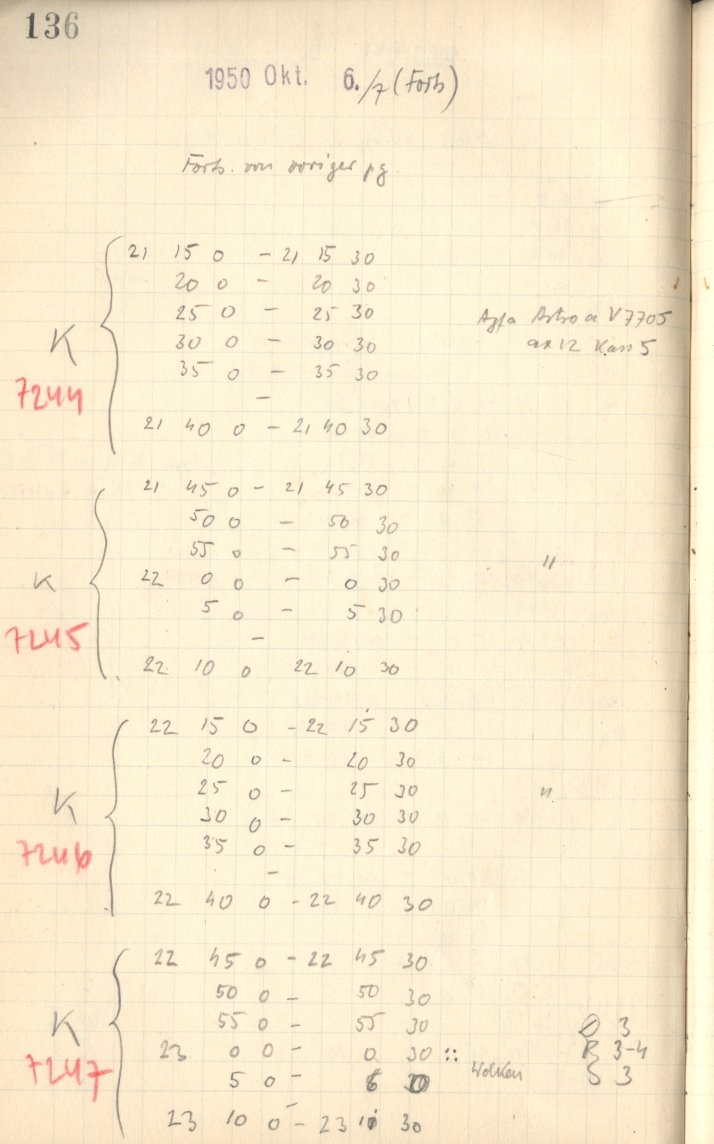 136
1950 Okt. 6./7 (Forts)
Forts. von voriger pg
21 15 0 - 21 15 30
20 0 - 20 30
25 0 - 25 30
30 0 - 30 30
35 0 - 35 30
-
21 40 0 - 21 40 30
K
7244
Agfa Astro V 7705
Kass 5
21 45 0 - 21 45 30
50 0 - 50 30
55 0 - 55 30
22 0 0 - 0 30
5 0 - 5 30
-
22 10 0 22 10 30
K
7245
"
22 15 0 - 22 15 30
20 0 - 20 30
25 0 - 25 30
30 0 - 30 30
35 0 - 35 30
-
22 40 0 - 22 40 30
K
7246
"
22 45 0 - 22 45 30
50 0 - 50 30
55 0 - 55 30
23 0 0 - 0 30 :: Wolken
5 0 - 30
-
23 10 0 - 23 10 30
K
7247
3
R 3-4
S 3